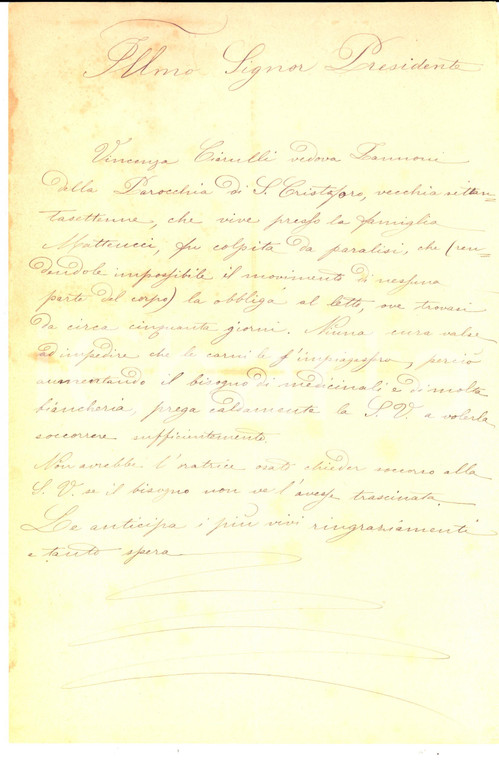 Illmo Signor Presidente
Vincenza Ciarulli vedova Pannoni
della Parocchia di S. Cristoforo, vecchia settan-
tasettenne, che vive presso la famiglia
Matteucci, fu colpita da paralisi, che (ren-
dendole impossibile il movimento di nessuna
parte del corpo) la obbliga al letto, ove trovasi
da circa cinquanta giorni. Niuna cura valse
ad impedire che le carni le s'impiagassero, perciò
aumentando il bisogno di medicinali e di molta
biancheria, prega caldamente la S. V. a volerla
soccorrere sufficientemente.
Non avrebbe l'oratrice osato chieder soccorso alla
S. V. se il bisogno non ve l'avesse trascinata.
Le anticipa i più vivi ringraziamenti
e tanto spera